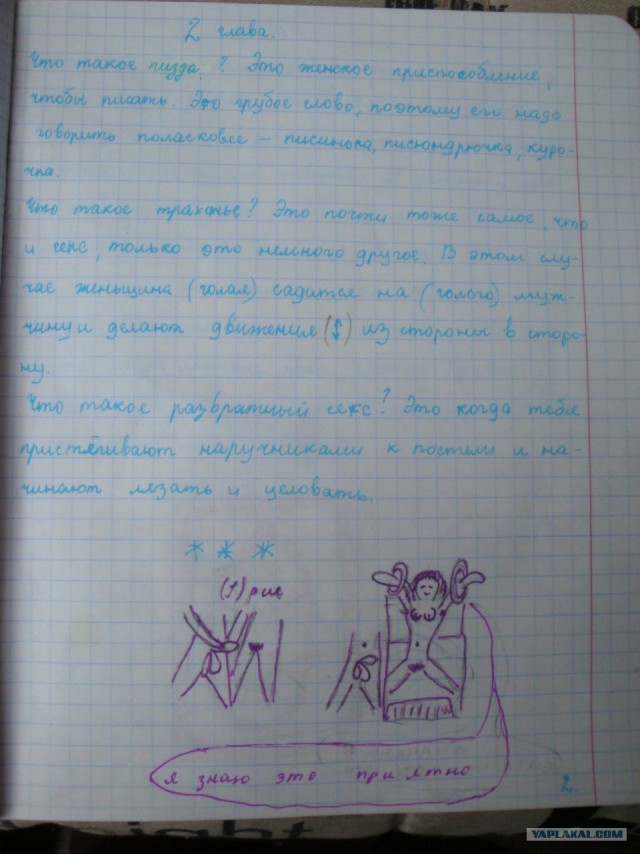 2 глава.
Что такое пизда? Это женское приспособление,
чтобы писать. Это грубое слово, поэтому его надо
говорить поласковее – писинька, писюндрючка, куро-
чка.
Что такое траханье? Это почти тоже самое, что
и секс, только это немного другое. В этом слу-
чае женьщина (голая) садится на (голого) муж-
чину и делают движения (↕) из стороны в сторо-
ну.
Что такое развратный секс? Это когда тебя
пристёгивают наручниками к постели и на-
чинают лезать и целовать.
* * *
(1) рис
я знаю это приятно
2.
YAPLAKAL.COM